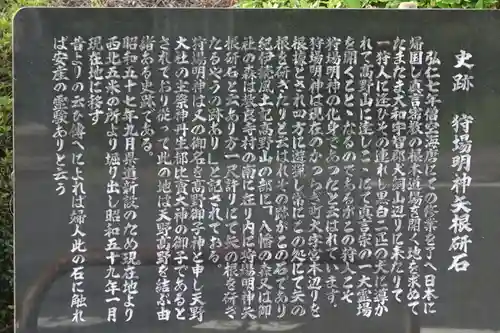 史跡　狩場明神矢根研石
弘仁七年僧空海唐にての修業を了へ日本に
帰国し真言密教の根本道場を開く地を求めて
たまたま大和宇智郡犬飼山辺りに来たりて
一狩人に逢ひその連れし黒白二匹の犬に導か
れて高野山に達しここにて真言宗の一大霊場
を開くこととなるのであるがこの狩人こそ
狩場明神の化身であったと云はれています。
狩場明神は現在のかつらぎ町大字宮本辺りを
根據とされ四方に遊猟し常にこの処にて矢の
根を研きたりと云はれその跡がこの石であり
紀伊続風土記高野山の部に、八幡の森又は御
社の森は教良寺村の南に在り内に狩場明神矢
根研石と云あり方一尺許りにて矢の根を研ぎ
たるやうの跡あり」と記されておる。
狩場明神は又の御名を高野御子神と申し天野
大社の主祭神丹生都比賣大神の御子であると
されており従って此の地は天野高野を結ぶ由
緒ある史跡である。
昭和五十七年九月県道新設のため現在地より
西北五米の所より堀り出し昭和五十九年一月
現在地に移す
昔よりの云ひ傳へによれば婦人此の石に触れ
ば安産の霊験ありと云う